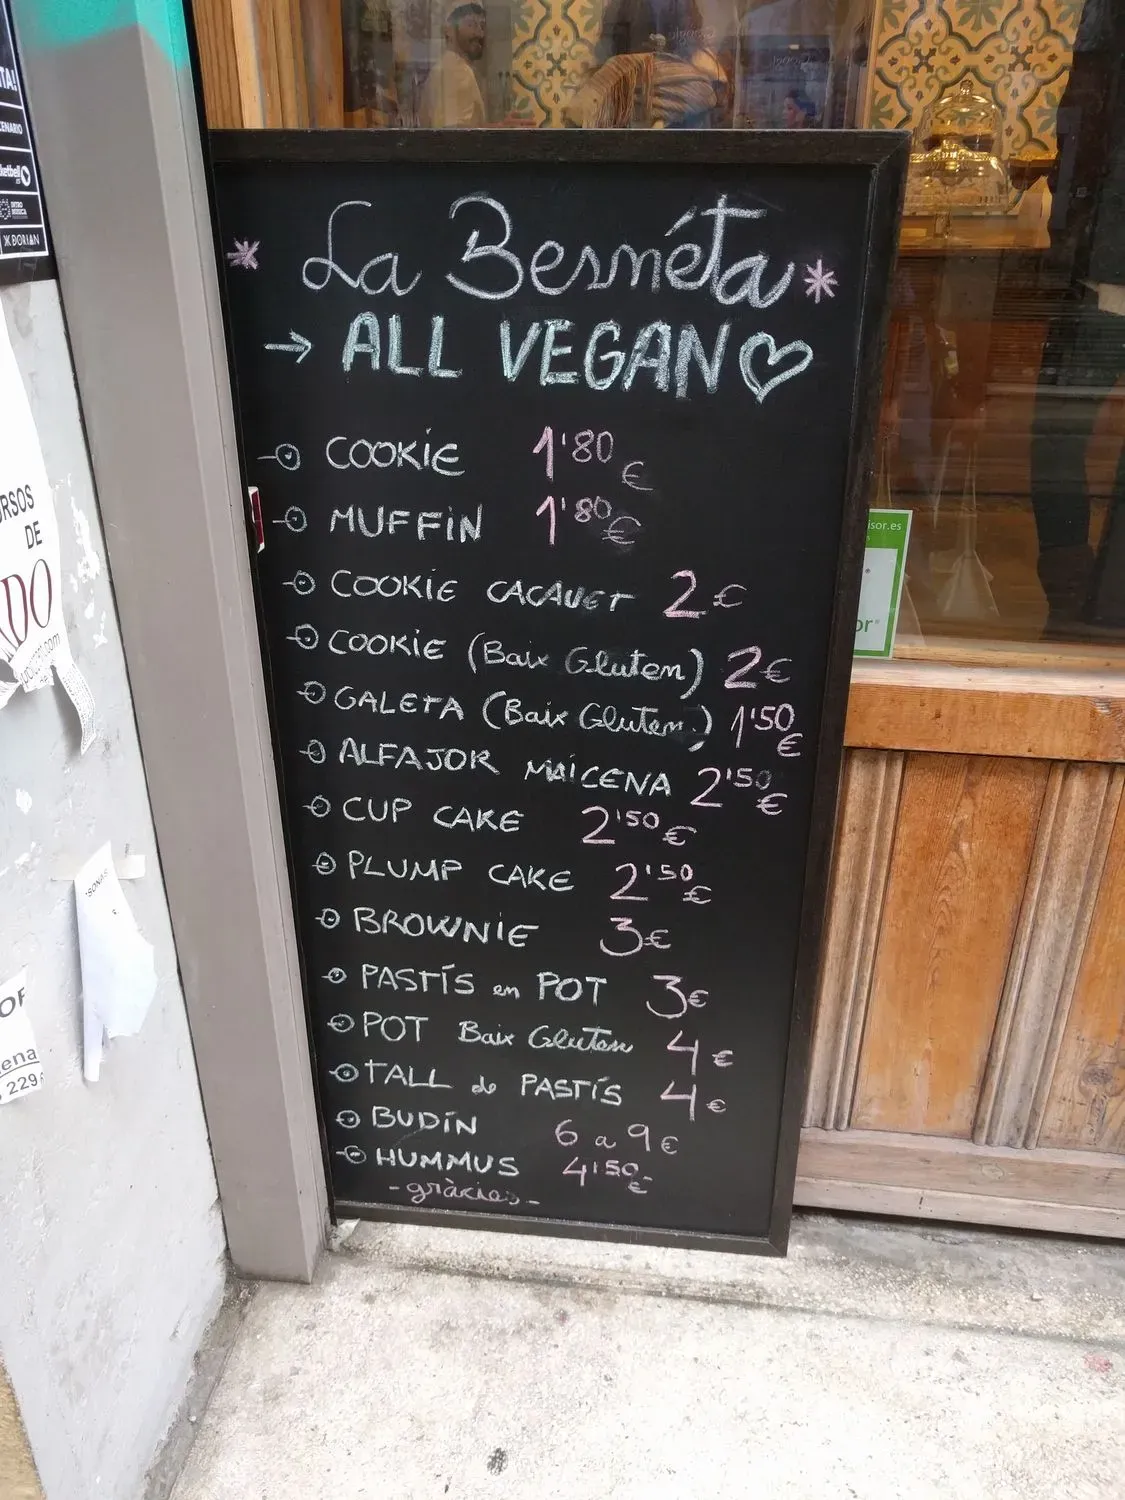 La Besnéta
→ ALL VEGAN ♡
COOKIE 1'80 €
MUFFIN 1'80 €
COOKIE CACAUET 2€
COOKIE (Baix Gluten) 2€
GALETA (Baix Gluten) 1'50 €
ALFAJOR MAICENA 2'50 €
CUP CAKE 2'50 €
PLUMP CAKE 2'50 €
BROWNIE 3€
PASTÍS en POT 3€
POT Baix Gluten 4€
TALL de PASTÍS 4€
BUDÍN 6 a 9€
HUMMUS 4'50€
-gràcies-
TA!
DORIAN
DE
sor.es
or®
OF
ena
229